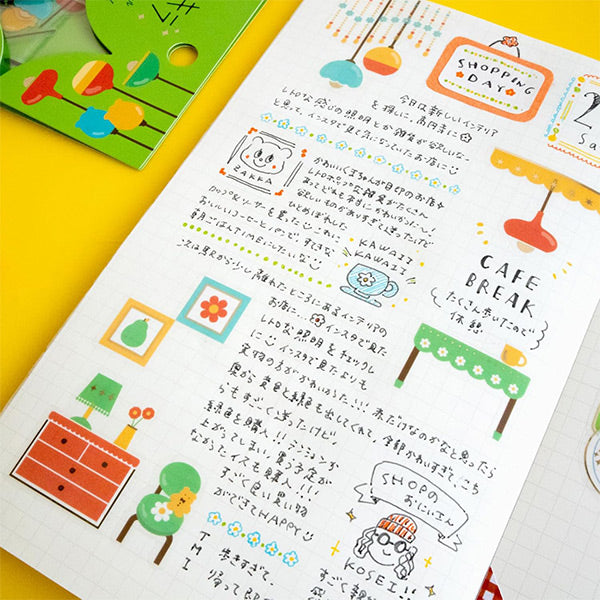 SHOPPING
DAY
今日は新しいインテリア
を探しに、高円寺に
レトロな感じの照明とか雑貨が欲しいな、
と思って、インスタで見て気になっていたお店に
ZAKKA
かわいいくまちゃんが目印のお店
レトロポップな雑貨がたくさん
あってどれも本当にかわいかった
欲しいものがありすぎて迷ったけど
ひとめぼれした
カップ&ソーサーを買った これに
おいしいコーヒーとパンで、すてきな
朝ごはんTIMEにしたいな
KAWAII
KAWAII
CAFE
BREAK
たくさん歩いたので
休憩
次は駅から少し離れたところにあるインテリアの
お店に... インスタで見た
レトロな照明をチェック
に インスタで見たよりも
実物の方がかわいかった!!! 赤だけなのかなと思ったら
奥から黄色と緑色も出してくれて、全部かわいすぎて、こち
らもすごく迷ったけど
緑色を購入!! テンションが
上がってしまい、
ながらイスも購入!!!
すごく良い買い物
ができてHAPPY
SHOPの
おにいさん
KOSEI!!
TMI
歩きすぎて、
すごく
2
Sa